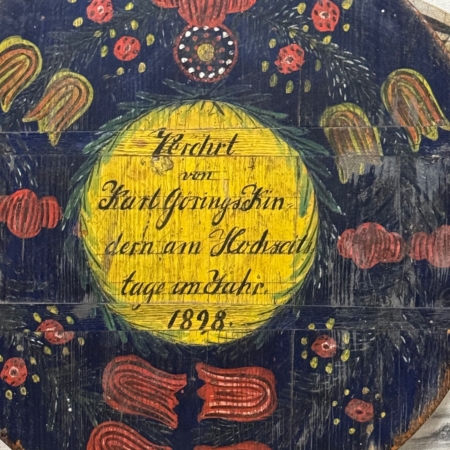 Verehrt
von
Karl Görings Kin-
dern am Hochzeits
tage im Jahr.
1898.